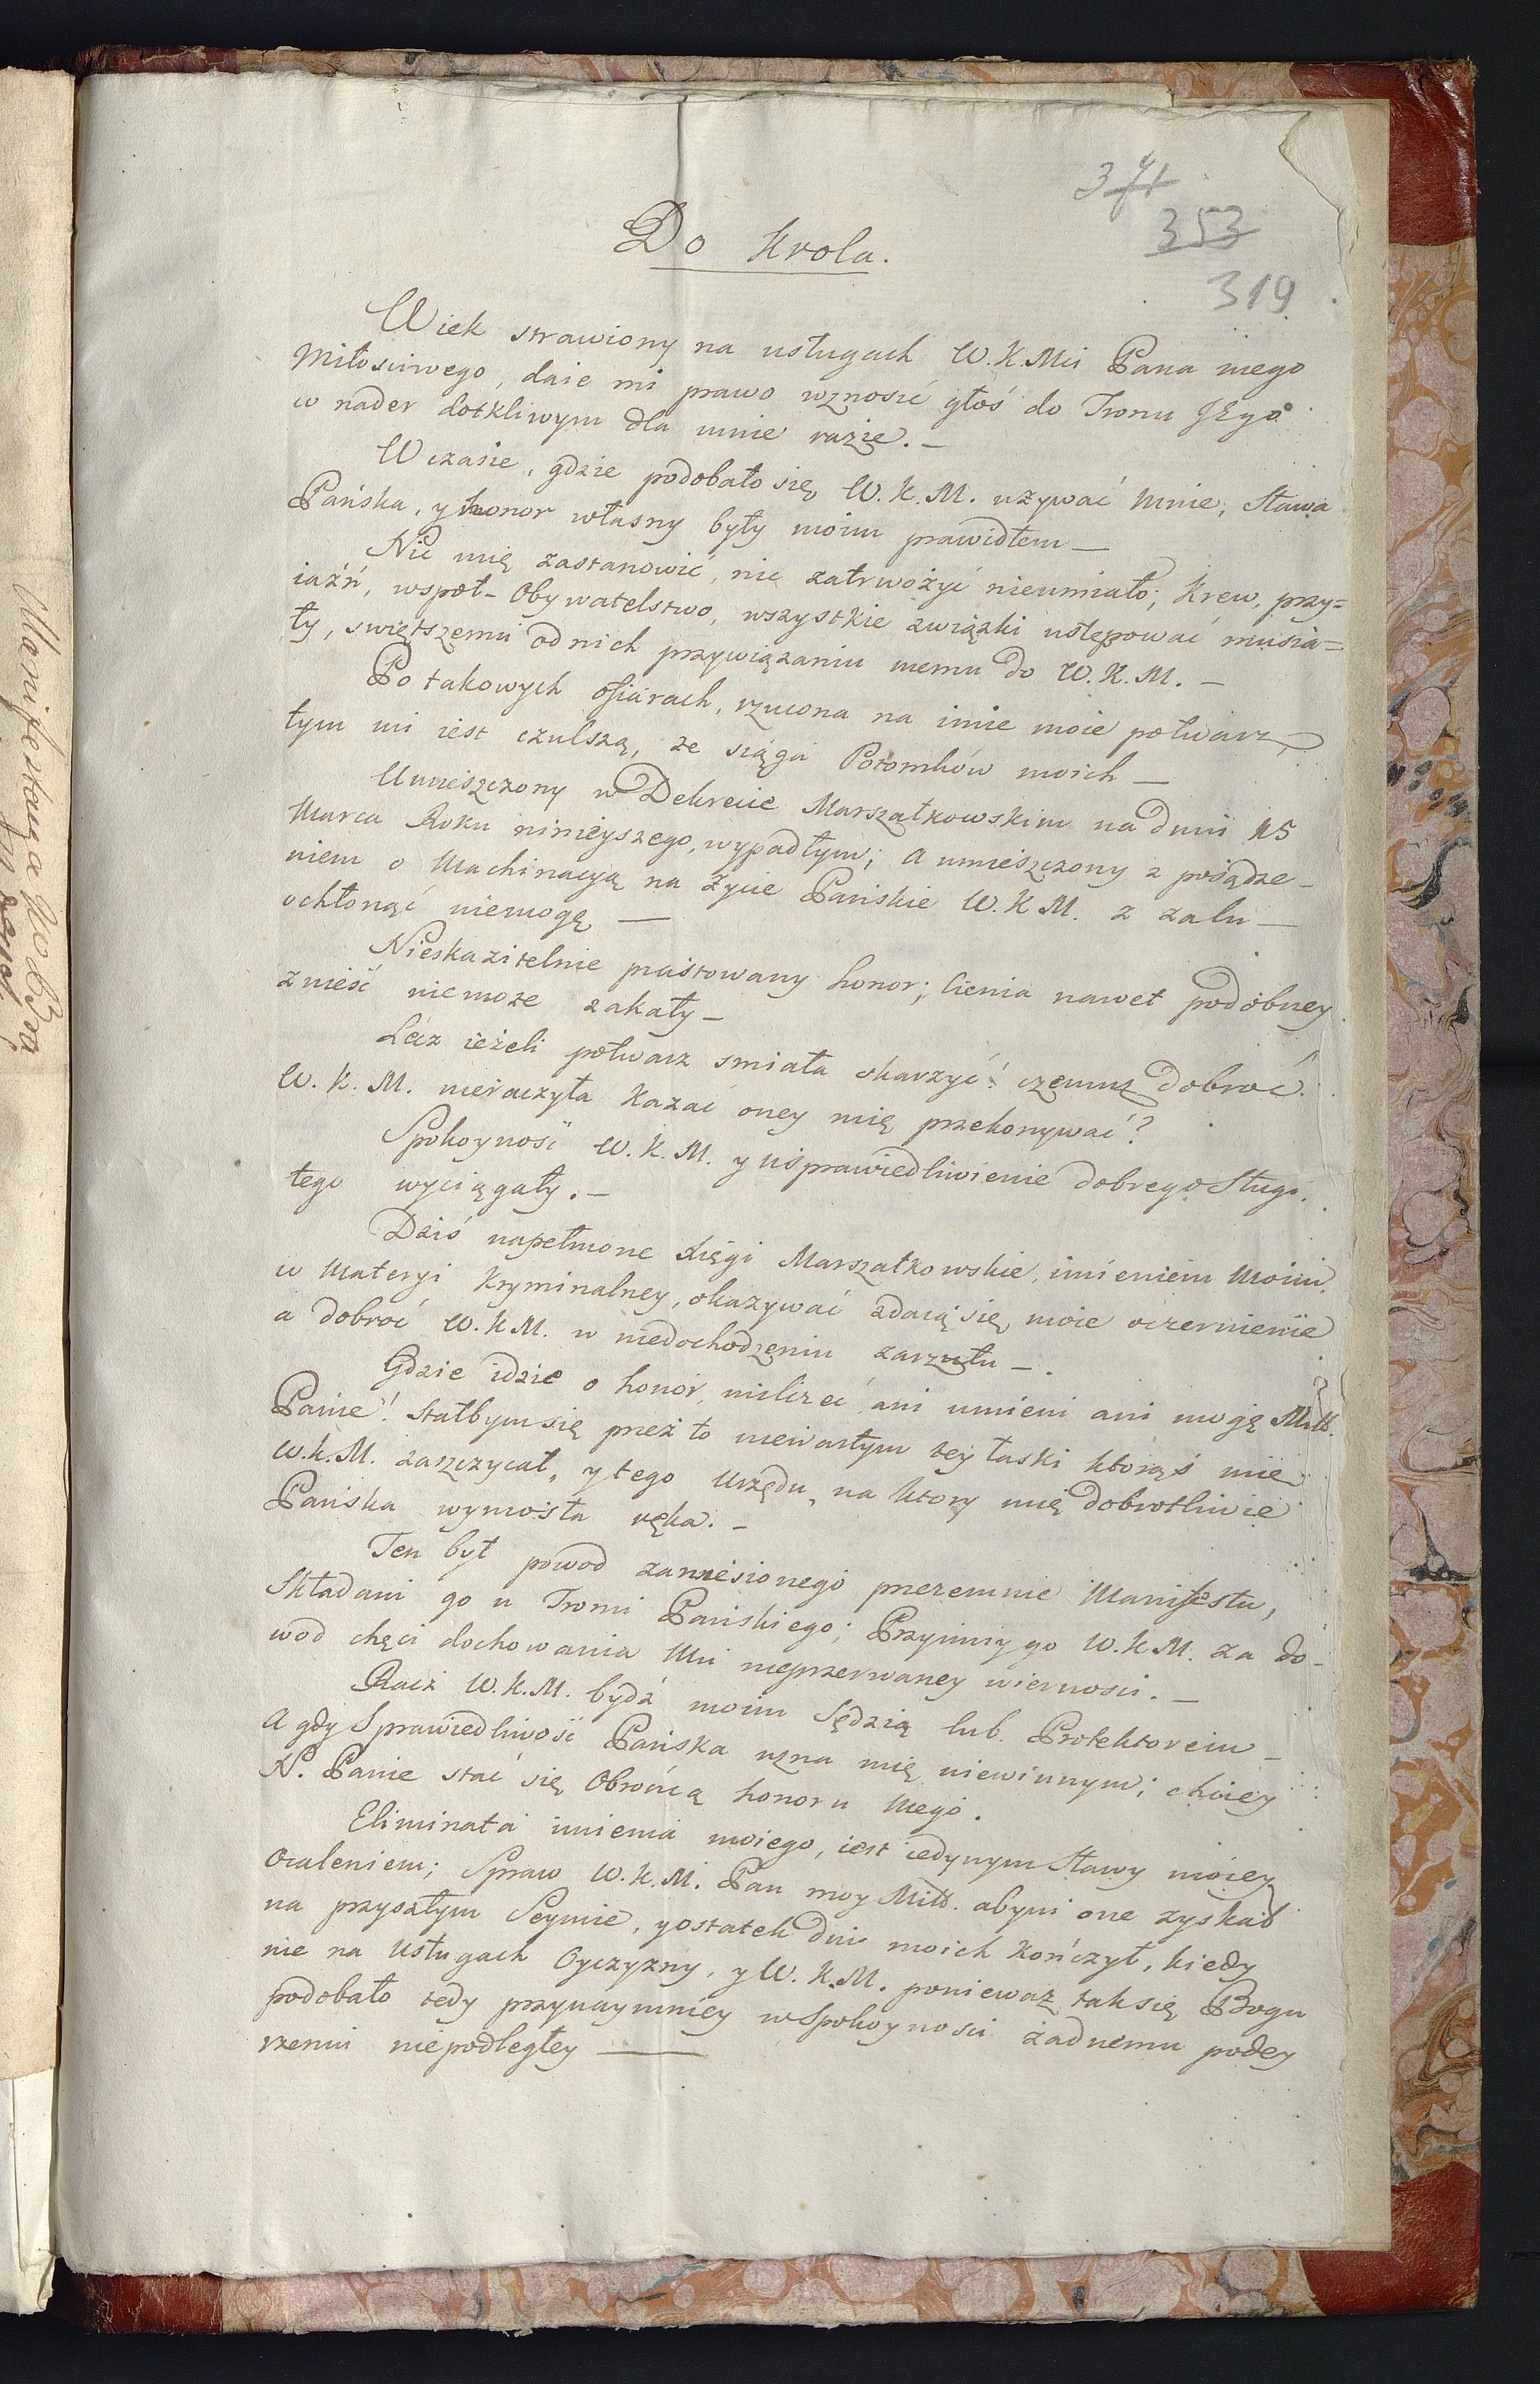 371
353
319
Do Krola.
Wiek strawiony na usługach W.K.Mci Pana mego
Miłosciwego, daie mi prawo wznosić głoś do Tronu JEgo
w nader dotkliwym dla mnie razię. –
W czasie, gdzie podobało się W.K.M. uzywać Mnie, Sława
Pańska, y honor własny były moim prawidłem –
Nic mię zastanowić, nic zatrwożyć nieumiało; Krew, przy=
iaźń, wspoł-Obywatelstwo, wszystkie związki ustępować musia=
ły, swiętszemu od nich przywiązaniu memu do W.K.M. –
Po takowych ofiarach, rzucona na imie moie potwarz,
tym mi iest czulszą, ze siąga Potomków moich –
Umieszczony w Dekrecie Marszałkowskim na dniu 15
Marca Roku ninieyszego, wypadłym; a umieszczony z posądze-
niem o Machinacyą na życie Pańskie W.K.M. z zalu –
ochłonąć niemogę –
Nieskazitelnie piastowany honor; Cienia nawet podobney
znieść niemoze zakały –
Lecz ieżeli potwarz smiała skarzyć! czemuz dobroć
W.K.M. nieraczyła Kazać oney mię przekonywać?
Spokoyność W.K.M. y usprawiedliwienie dobrego Sługi
tego wyciągały. –
Dziś napełnione Księgi Marszałkowskie, imieniem Moim
w Materyi Kryminalney, okazywać zdaią się moie oczernienie
a dobroć W.K.M. w niedochodzeniu zarzutu –
Gdzie idzie o honor, milczeć ani umiem ani mogę Miłł.
Panie! Stałbym się przez to niewartym tey łaski ktorąś mię
W.K.M. zaszczycał, y tego Urzędu, na ktory mię dobrotliwie
Pańska wyniosła ręka. –
Ten był powod zaniesionego przezemnie Manifestu,
Składam go u Tronu Pańskiego; Przyimiy go W.K.M. za do-
wod chęci dochowania Mu nieprzerwaney wiernosci. –
Racz W.K.M. bydź moim Sędzią lub Protektorem –
A gdy Sprawiedliwość Pańska uzna mię niewinnym; chciey
N. Panie stać się Obrońcą honoru Mego.
Eliminata imienia moiego, iest iedynym Sławy moiey
Ocaleniem; Spraw W.K.M. Pan moy Miłł. abym one zyskał
na przyszłym Seymie, y ostatek dni moich kończył, kiedy
nie na Usługach Oyczyzny, y W.K.M. poniewaz tak się Bogu
podobało tedy przynaymniey w Spokoynosci żadnemu podey
rzeniu niepodległey –